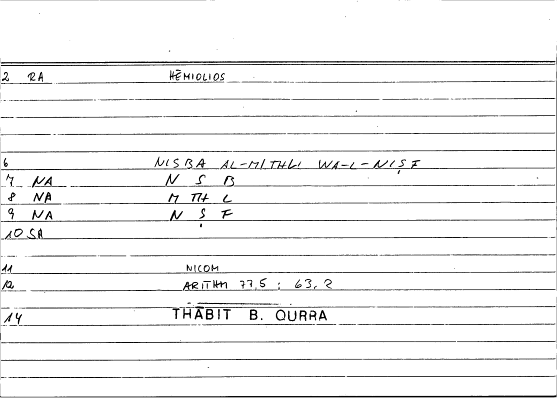 2 RA HĒMIOLIOS
6 NISBA AL-MITHLI WA-L-NIṢF
7 NA N S B
8 NA M TH L
9 NA N Ṣ F
10 SA
11 NICOM
12 ARITHM 77,5 : 63,2
14 THĀBIT B. QURRA